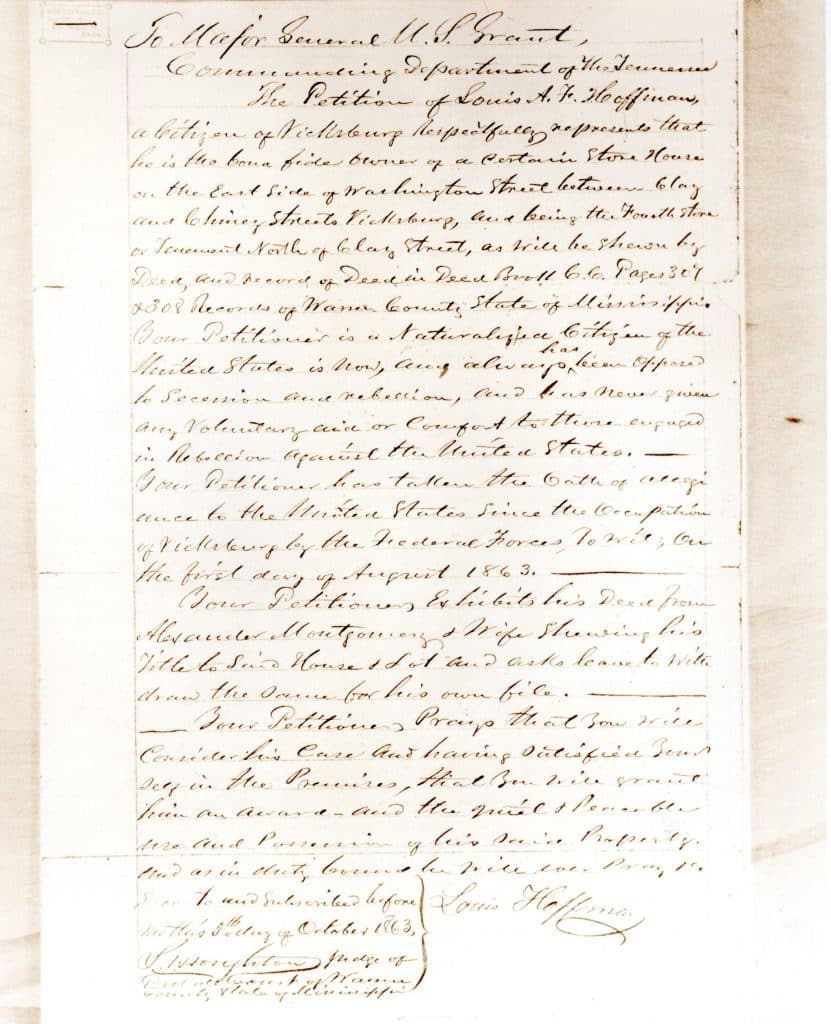 To Major General U. S. Grant,
Commanding Department of the Tennessee
The Petition of Louis A. F. Hoffman,
a Citizen of Vicksburg Respectfully represents that
he is the bona fide owner of a certain Store House
on the East Side of Washington Street between Clay
and China Streets Vicksburg, and being the Fourth Store
or Tenement North of Clay Street, as will be Shewn by
Deed, and record of Deed in Deed Book C.C. Pages 307
& 308 Records of Warren County State of Mississippi.
Your Petitioner is a Naturalized Citizen of the
United States is now, and always has been opposed
to Secession and rebellion, and has never given
any Voluntary aid or Comfort to those engaged
in Rebellion against the United States. —
Your Petitioner has taken the Oath of allegi
ance to the United States Since the Occupation
of Vicksburg by the Federal Forces, To Wit; On
the first day of August 1863. —
Your Petitioner, Exhibits his Deed from
Alexander Montgomery & Wife Shewing his
Title to Said House & Lot and asks leave to with
draw the same for his own file. —
— Your Petitioner, Prays that You will
Consider his Case And having satisfied Your
self in the Premises, that You will grant
him an award – and the quiet & Peaceable
use and Possession of his said Property.
and as in duty bound he will ever Pray &c.
Sworn to and Subscribed before
me this 5th day of October 1863,
Louis Hoffman
Houghton Judge of
Probate Court of Warren
County State of Mississippi